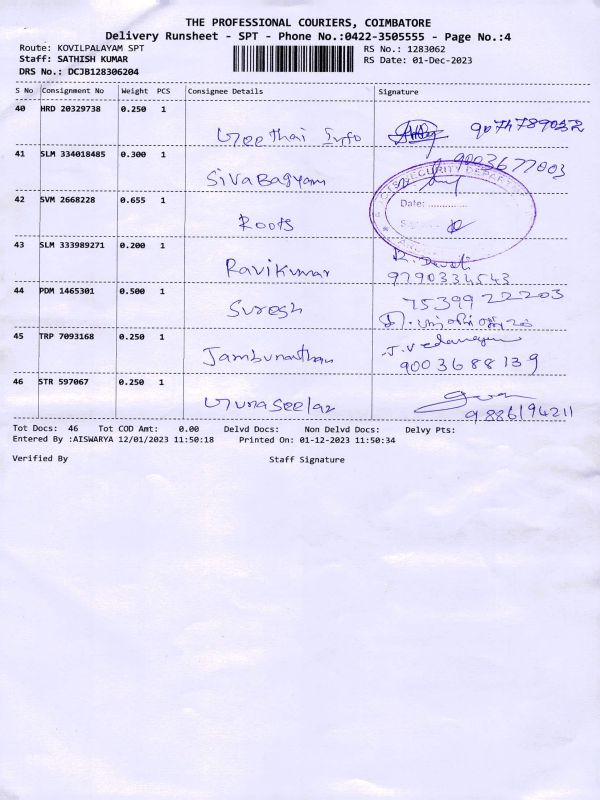 THE PROFESSIONAL COURIERS, COIMBATORE
Delivery Runsheet - SPT - Phone No.:0422-3505555 - Page No.:4
Route: KOVILPALAYAM SPT RS No.: 1283062
Staff: SATHISH KUMAR RS Date: 01-Dec-2023
DRS No.: DCJB128306204
S No Consignment No Weight PCS Consignee Details Signature
40 HRD 20329738 0.250 1 Geethai Info
41 SLM 334018485 0.300 1 Sivabagyam 9003677003
SECURITY
42 SVM 2668228 0.655 1 Roots Date: ............
43 SLM 333989271 0.200 1 Ravikumar R. Devati
9790334543
44 PDM 1465301 0.500 1 Suresh 7539922203
45 TRP 7093168 0.250 1 Jambunathan J. Vedanayan
9003688139
46 STR 597067 0.250 1 Gunaseelan
9886194211
Tot Docs: 46 Tot COD Amt: 0.00 Delvd Docs: Non Delvd Docs: Delvy Pts:
Entered By :AISWARYA 12/01/2023 11:50:18 Printed On: 01-12-2023 11:50:34
Verified By Staff Signature